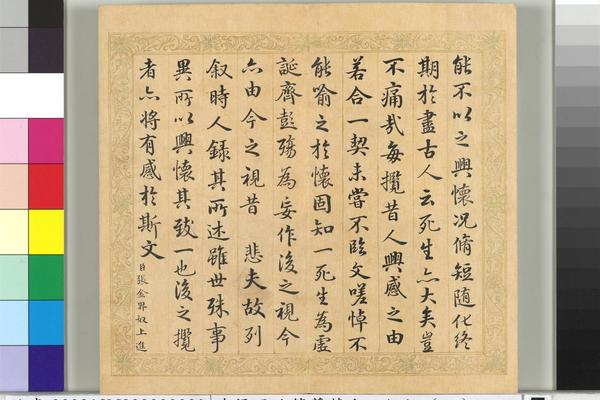 能不以之興懷况脩短随化终
期於盡古人云死生亦大矣豈
不痛哉每攬昔人興感之由
若合一契未嘗不臨文嗟悼不
能喻之於懷固知一死生為虛
誕齊彭殤為妄作後之視今
亦由今之視昔 悲夫故列
叙時人錄其所述雖世殊事
異所以興懷其致一也後之攬
者亦将有感於斯文
臣張金界奴上進